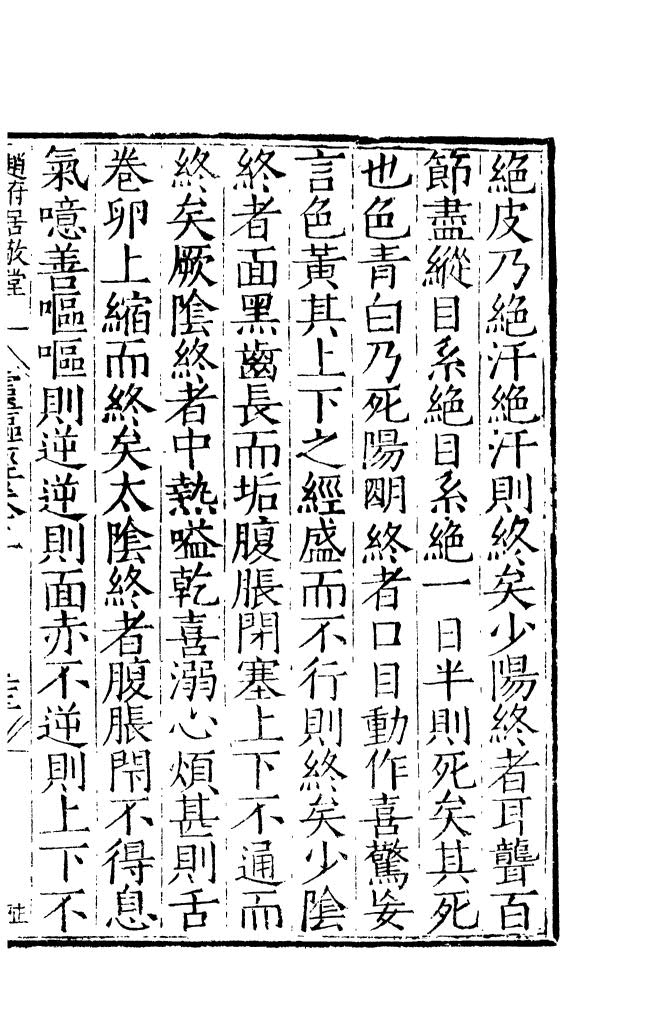 絕皮乃絕汗絕汗則終矣少陽終者耳聾百
節盡縱目系絕目系絕一日半則死矣其死
也色青白乃死陽明終者口目動作喜驚妄
言色黃其上下之經盛而不行則終矣少陰
終者面黑齒長而垢腹脹閉塞上下不通而
終矣厥陰終者中熱嗌乾喜溺心煩甚則舌
卷卵上縮而終矣太陰終者腹脹閉不得息
氣噫善嘔嘔則逆逆則面赤不逆則上下不
趙府居敬堂